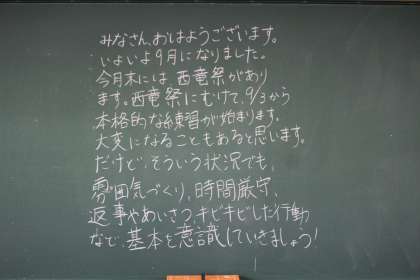 みなさん、おはようございます。
いよいよ9月になりました。
今月末には西竜祭があり
ます。西竜祭にむけて、9/3から
本格的な練習が始まります。
大変になることもあると思います。
だけど、そういう状況でも、
雰囲気づくり、時間厳守、
返事やあいさつ、キビキビした行動
など、基本を意識していきましょう!